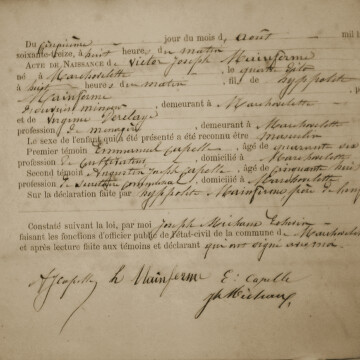 Du cinquième jour du mois d août mil
soixante-seize, à huit heures du matin
ACTE DE NAISSANCE de Victor Joseph Mainferme
né à Marchovelette le quatre dito
à huit heures du matin , fils de hyppolite
Mainferme
, demeurant à Marchovelette
et de Virginie
profession de ménagère , demeurant à Marchovelette
Le sexe de l'enfant qui a été présenté a été reconnu être masculin
Premier témoin Emmanuel Capelle , âgé de quarante six
profession de Cultivateur , domicilié à Marchovelette
Second témoin Augustin Joseph Capelle , âgé de cinquante huit
profession de Secrétaire communal , domicilié à Marchovelette
Sur la déclaration faite par hyppolite Mainferme père de
Constaté suivant la loi, par moi Joseph
faisant les fonctions d'officier public de l'état-civil de la commune de Marchovelette
et après lecture faite aux témoins et déclarant qui ont signé avec moi.
AJCapelle h Mainferme E. Capelle